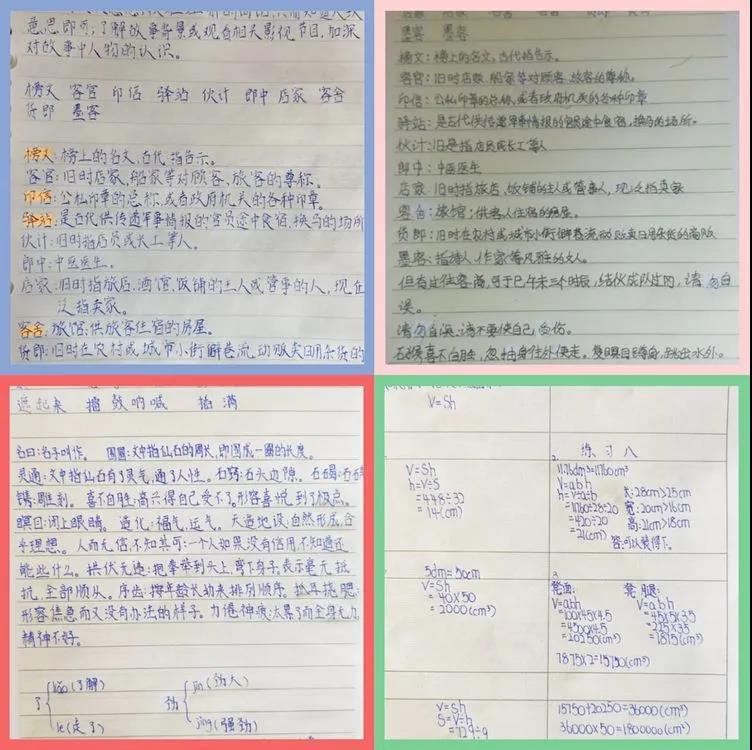 意思即可;了解故事背景或观看相关影视节目,加深
对故事中人物的认识。
榜文 客官 印信 驿站 伙计 郎中 店家 客舍
货郎 墨客
榜文:榜上的名文,古代指告示。
客官:旧时店家、船家等对顾客、旅客的尊称。
印信:公私印章的总称,或者政府机关的各种印章。
驿站:是古代供传递军事情报的官员途中食宿、换马的场所
伙计:旧时指店员或长工等人。
郎中:中医医生。
店家:旧时指旅店、酒馆、饭铺的主人或管事的人,现在
泛指卖家。
客舍:旅馆;供旅客住宿的房屋。
货郎:旧时在农村或城市小街僻巷流动贩卖日用杂货的
墨客 墨客
榜文:榜上的名文,古代指告示。
客官:旧时店家、船家等对顾客、旅客的尊称。
印信:公私印章的总称,或者政府机关的各种印章
驿站:是古代供传递军事情报的官员途中食宿,换马的场所。
伙计:旧是指店员或长工等人
郎中:中医医生
店家:旧时指旅店,饭铺的主人或管事人,现泛指卖家
客舍:旅馆;供客人住宿的房屋。
货郎:旧时在农村或城市小街僻巷流动贩卖日用杂货的商贩
墨客:指诗人、作家等风雅的文人。
但有过往客商,可于巳午未三个时辰,结伙成队过冈,请勿自
误。
请勿自误:请不要使自己受伤。
石猴喜不自胜,忽抽身往外便走。复瞑目蹲身,跳出水外。
迸起来 擂鼓呐喊 插满
名曰:名字叫作。 围圆:文中指仙石的周长,即围成一圈的长度。
灵通:文中指仙石有了灵气,通了人性。石窍:石头边隙。石碣:石碑
镌:雕刻。 喜不自胜:高兴得自己受不了,形容喜悦到了极点。
瞑目:闭上眼睛。 造化:福气,运气。天造地设:自然形成,合
乎理想。人而无信,不知其可:一个人如果没有信用,不知道还
能些什么。拱伏无违:把拳举到头上,弯下身子,表示毫无抵
抗,全部顺从。序齿:按年龄长幼来排列顺序。抓耳挠腮:
形容焦急而又没有办法的样子。力倦神疲:太累了而全身无力,
精神不好。
了 liǎo(了解) 劲 jìn(劲大)
le(走了) jìng(强劲)
V=Sh
V=Sh
h=V÷S
=448÷32
=14(cm)
2. 练习八
11.76dm³=11760cm³
V=abh
h=V÷a÷b 长:28cm>25cm
=11760÷28÷20 宽:20cm>16cm
=420÷20 高:21cm>18cm
=21(cm) 答:可以装得下。
5dm=50cm
V=Sh
=40×50
=2000(cm³)
3.
凳面: 凳腿:
V=abh V=abh
=100×45×4.5 =45×5×35
=4500×4.5 =225×35
=20250(cm³) =7875(cm³)
7875×2=15750(cm³)
V=Sh
S=V÷h
=729÷9
15750+20250=36000(cm³)
36000×50=1800000(cm³)